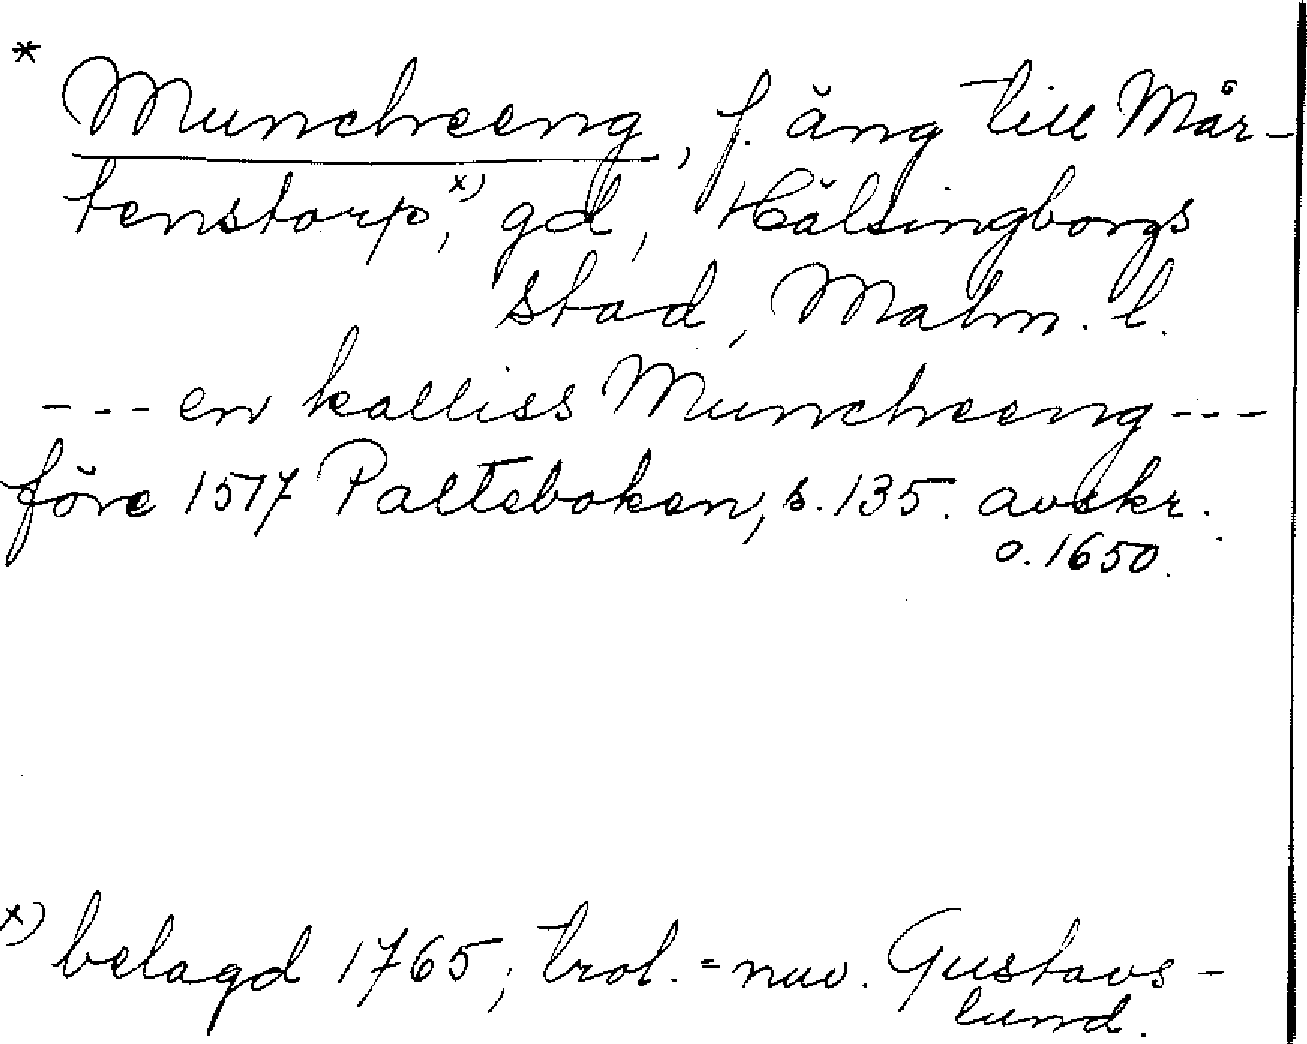 * Muncheeng, f. äng till Mår-
tenstorp,x) gd, Hälsingborgs
stad, Malm. l.
--- en kalliss Muncheeng ---
före 1517 Palteboken, s. 135. avskr.
o. 1650.
x) belagd 1765, trol. = nuv. Gustavs-
lund.